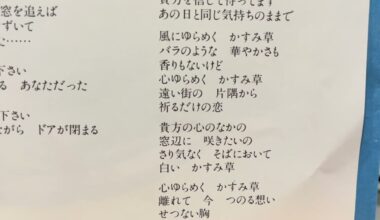 窓を追えば
ずいて
た……
下さい
る　あなただった
下さい
ながら　ドアが閉まる
貴方を信じて待ってます
あの日と同じ気持ちのままで
風にゆらめく　かすみ草
バラのような　華やかさも
香りもないけど
心ゆらめく　かすみ草
遠い街の　片隅から
祈るだけの恋
貴方の心のなかの
窓辺に　咲きたいの
さり気なく　そばにおいて
白い　かすみ草
心ゆらめく　かすみ草
離れて　今　つのる想い
せつない胸